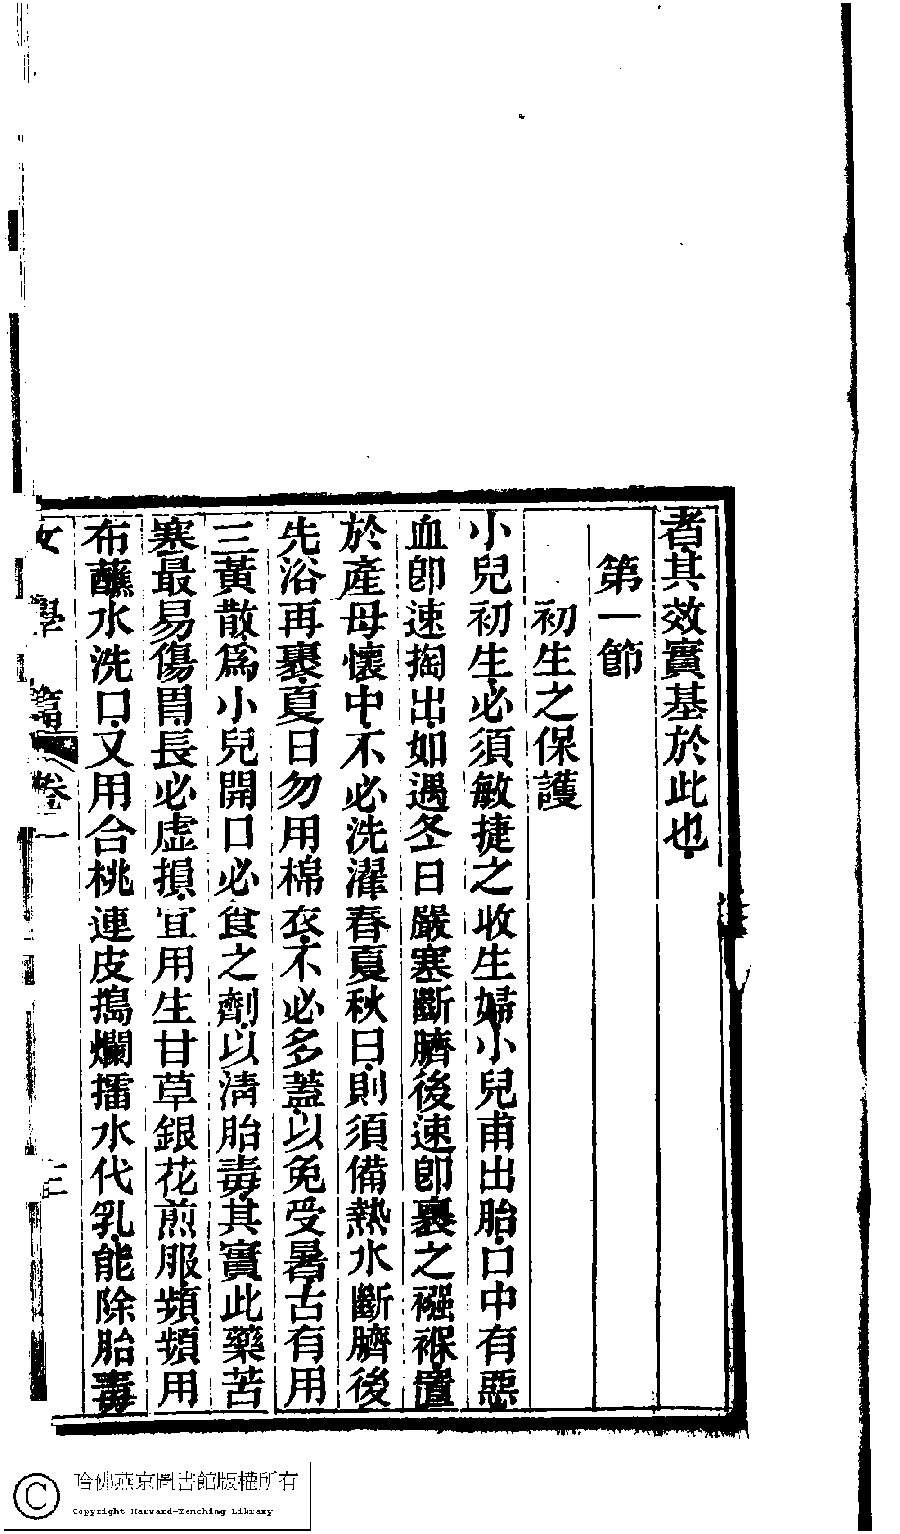 者其效實基於此也
第一節
初生之保護
小兒初生必須敏捷之收生婦小兒甫出胎口中有惡
血卽速掏出如遇冬日嚴寒斷臍後速卽裹之襁褓置
於產母懷中不必洗濯春夏秋日則須備熱水斷臍後
先浴再裹夏日勿用棉衣不必多蓋以免受暑古有用
三黃散爲小兒開口必食之劑以淸胎毒其實此藥苦
寒最易傷胃長必虛損宜用生甘草銀花煎服頻頻用
布蘸水洗口又用合桃連皮搗爛擂水代乳能除胎毒
女學篇 卷二
哈佛燕京圖書館版權所有
Copyright Harvard-Yenching Library